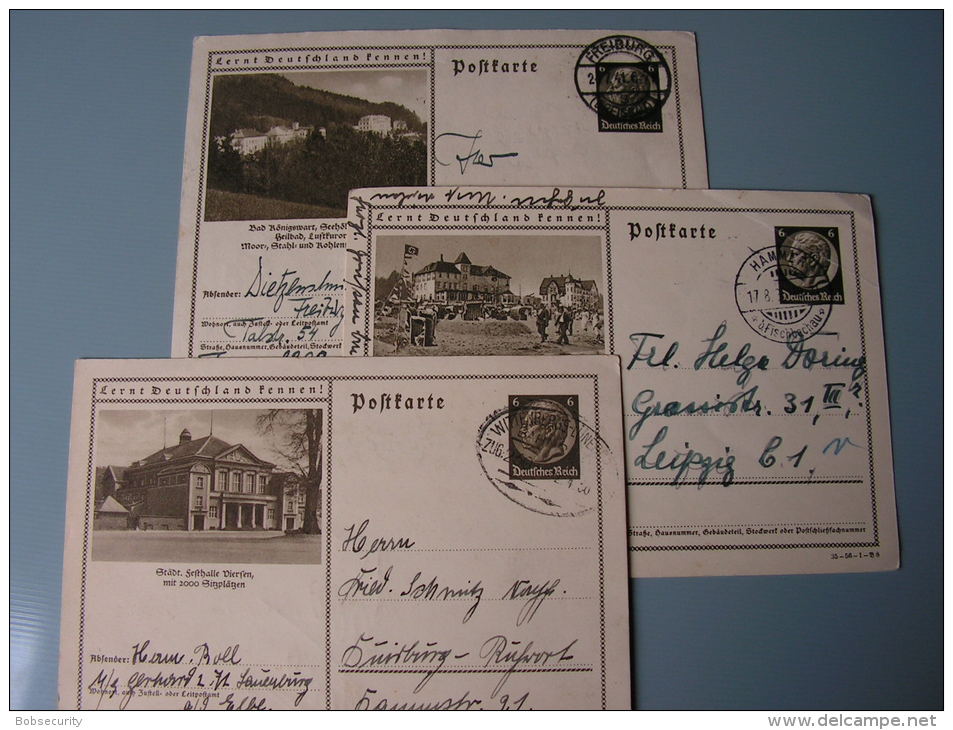 Lernt Deutschland kennen!
Postkarte
FREIBURG
6 6
Deutsches Reich
Bad Königswart, Seehö
Heilbad, Luftkuror
Moor-, Stahl- und Kohlen
Absender:
Wohnort, auch Zustell- oder Leitpostamt
Talstr. 54
Straße, Hausnummer, Gebäudeteil, Stockwerk
Lernt Deutschland kennen!
Postkarte
6 6
Deutsches Reich
17.8.
b. Fischbachau
Frl. Helga Döring
Grassistr. 31, III r.
Leipzig C.1
Straße, Hausnummer, Gebäudeteil, Stockwerk oder Postschließfachnummer
35-56-1-B8
Lernt Deutschland kennen!
Postkarte
6 6
Deutsches Reich
ZUG
Städt. Festhalle Viersen,
mit 2000 Sitzplätzen
Herrn
Fried. Schmitz
Duisburg-Ruhrort
Absender: Herm. Boll
Lauenburg
Wohnort, auch Zustell- oder Leitpostamt
a/d Elbe
Bobsecurity
www.delcampe.net